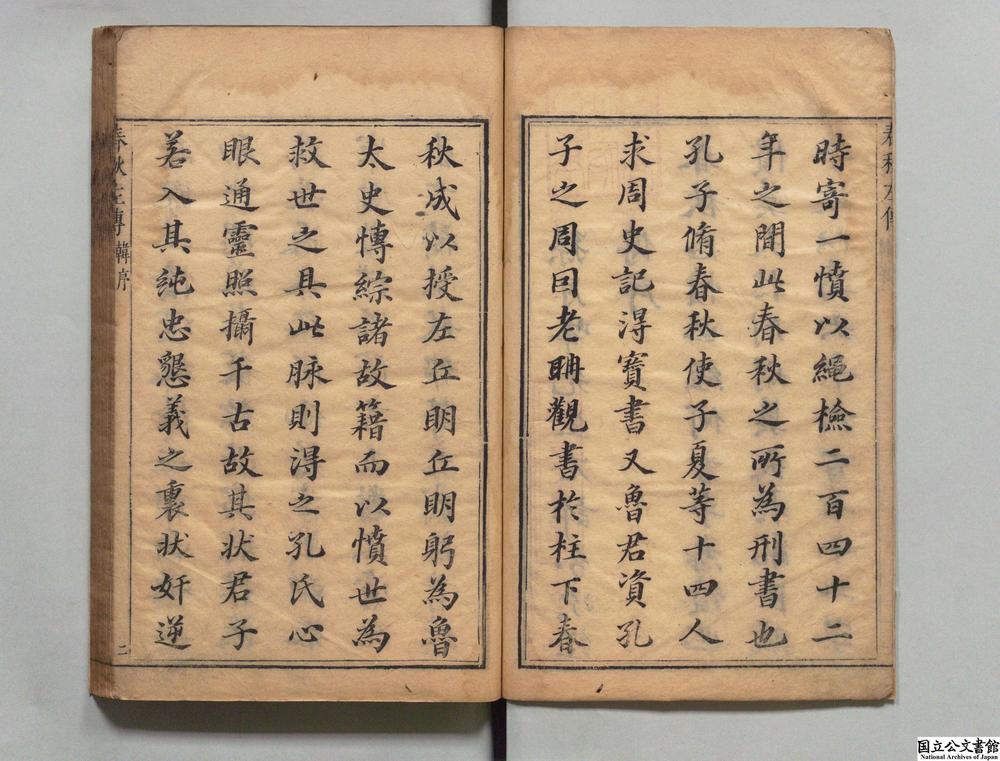 時寄一憤以繩檢二百四十二
年之間此春秋之所為刑書也
孔子脩春秋使子夏等十四人
求周史記淂寶書又魯君資孔
子之周囙老聃觀書於柱下春
秋成以授左丘明丘明躬為魯
太史慱綜諸故籍而以憤世為
救世之具此脉則淂之孔氏心
眼通靈照攝千古故其状君子
若入其純忠懇義之裏状奸逆
春秋左傳 韓序
二
国立公文書館
National Archives of Japan